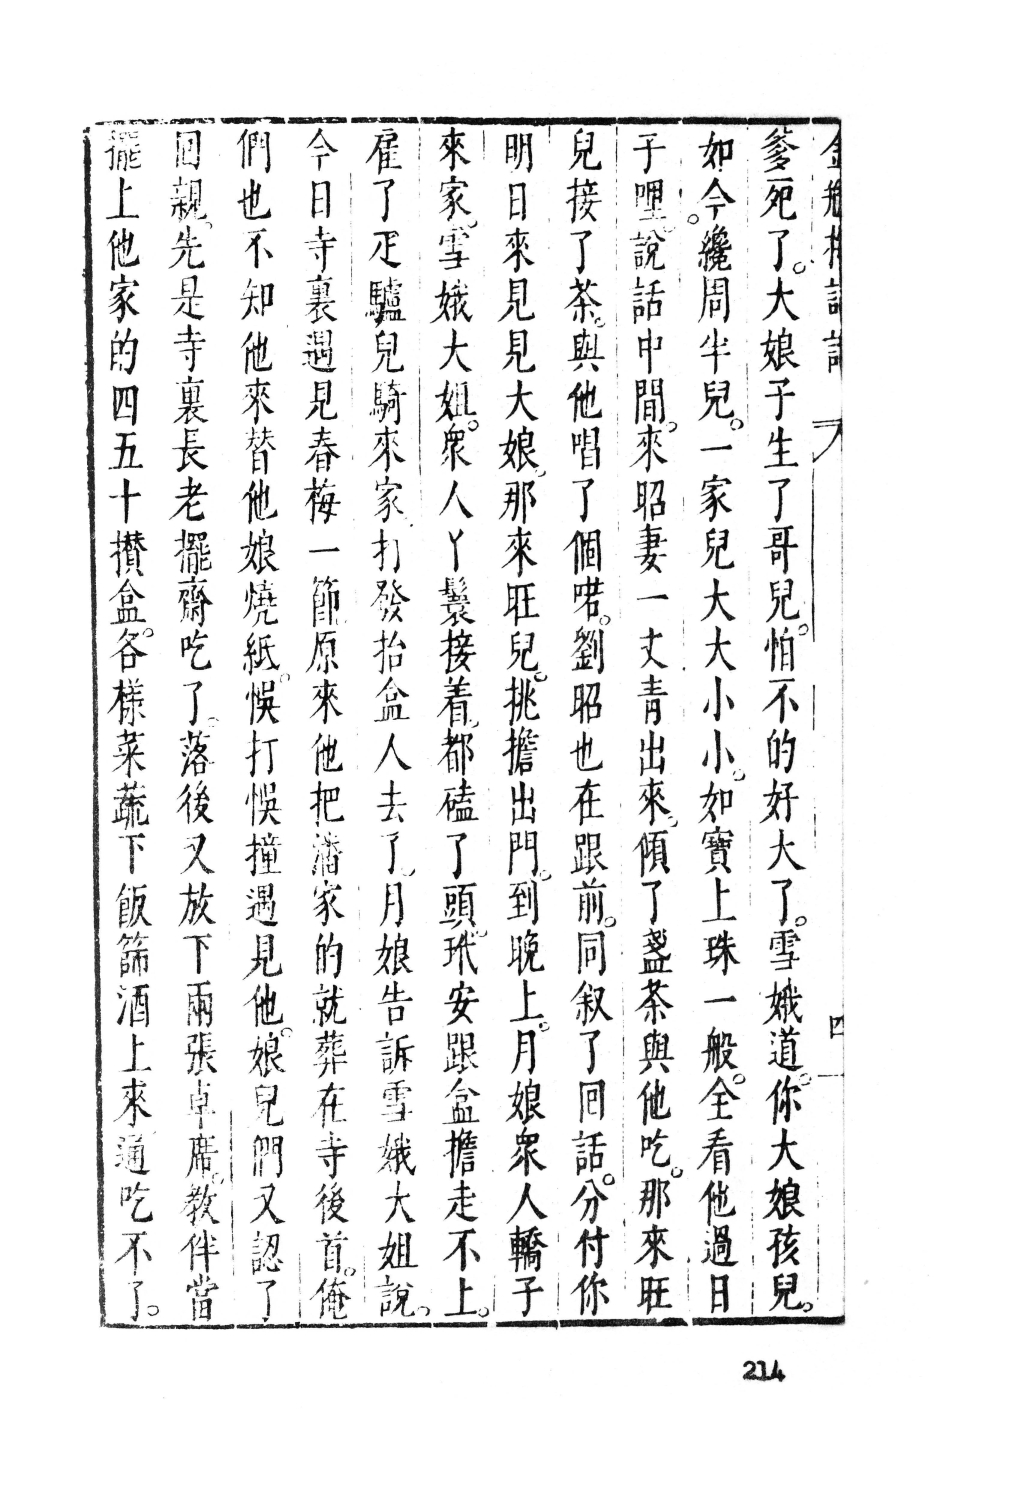 金瓶梅詞話　　四
爹死了。大娘子生了哥兒。怕不的好大了。雪娥道。你大娘孩兒。
如今。纔周半兒。一家兒大大小小。如寶上珠一般。全看他過日
子哩。說話中間。來昭妻一丈青出來。傾了盞茶與他吃。那來旺
兒接了茶。與他唱了個喏。劉昭也在跟前。同叙了回話。分付你
明日來見見大娘。那來旺兒。挑擔出門。到晚上。月娘衆人轎子
來家。雪娥大姐。衆人丫鬟接着。都磕了頭。玳安跟盒擔走不上。
雇了疋驢兒騎來家。打發抬盒人去了。月娘告訴雪娥大姐說。
今日寺裏遇見春梅一節。原來他把潘家的就葬在寺後首。俺
們也不知他來替他娘燒紙。悞打悞撞遇見他。娘兒們又認了
回親。先是寺裏長老擺齋吃了。落後又放下兩張卓席。教伴當
擺上他家的四五十攢盒。各樣菜蔬下飯篩酒上來。通吃不了。
214